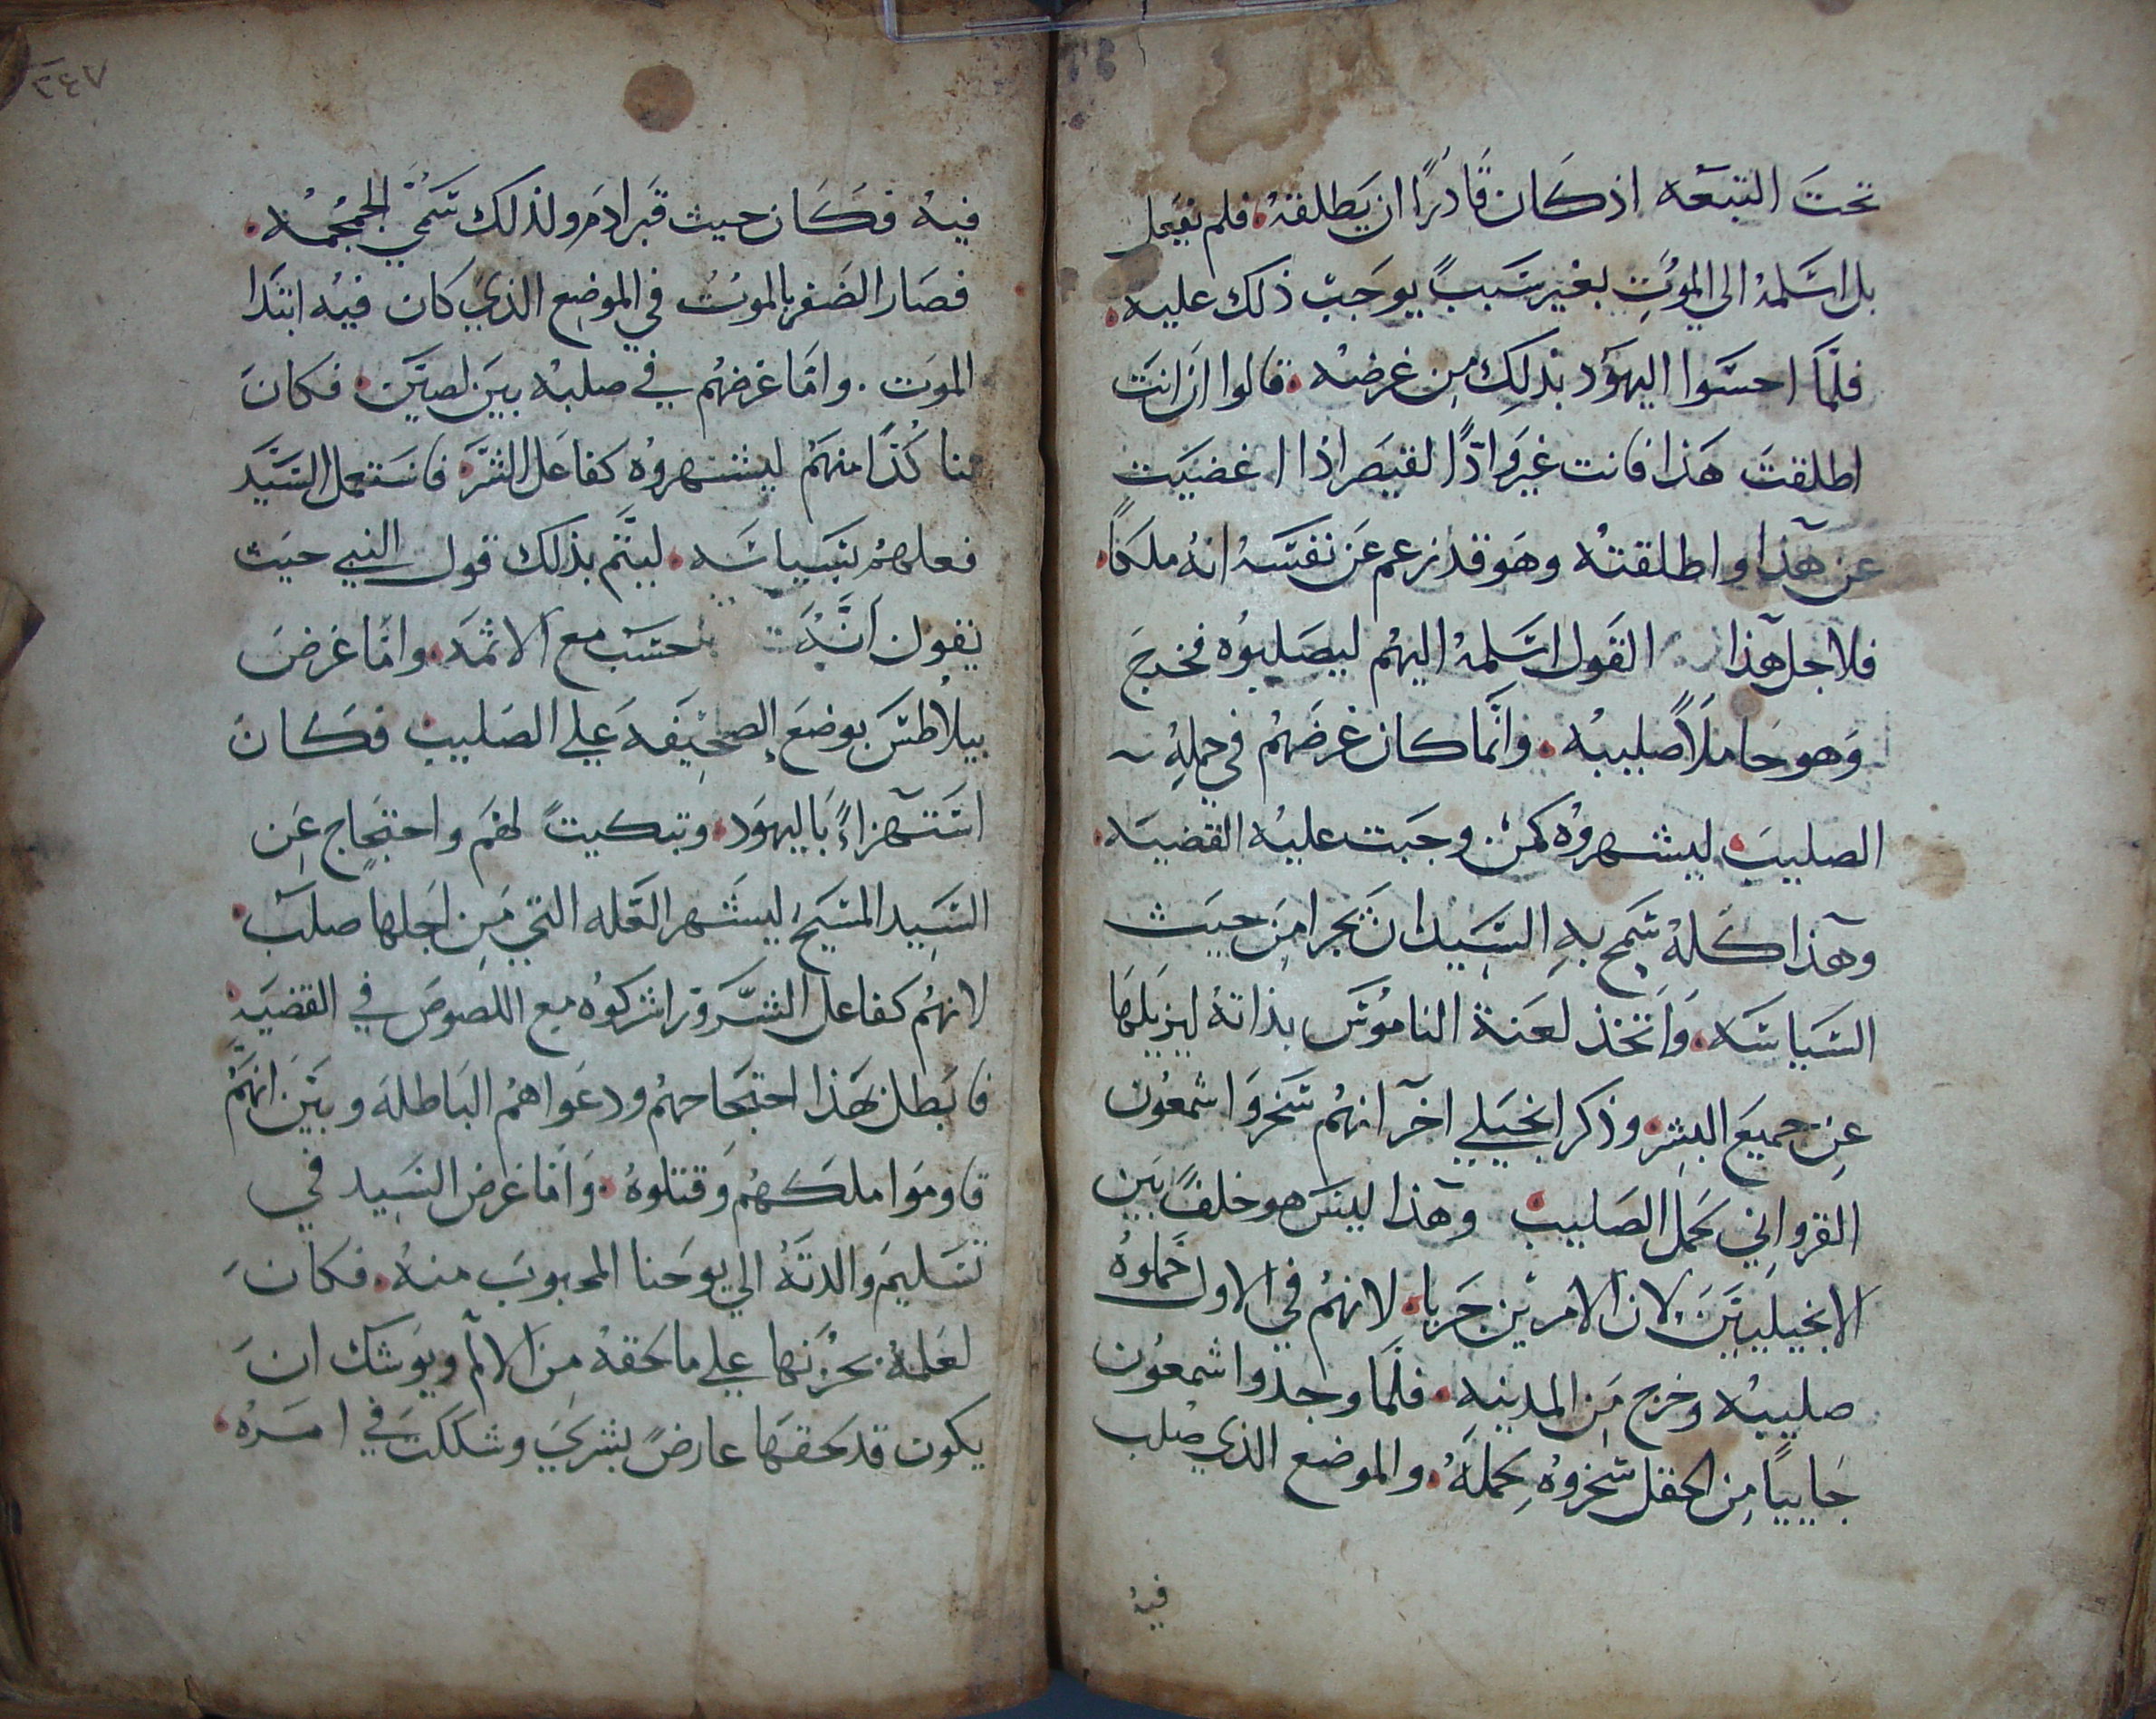 تحت التبعه اذ كان قادرًا ان يطلقه فلم يفعل
بل اسلمه الي الموت بغير سببً يوجب ذلك عليه
فلما احسوا اليهود بذلك من غرضه قالوا ان انت
اطلقت هذا فانت غير وادًا لقيصر اذا اغضيت
عن هذا واطلقته وهو قد زعم عن نفسه انه ملكًا
فلاجل هذا القول اسلمه اليهم ليصلبوه فخرج
وهو حاملاً صليبه وانما كان غرضهم في حمله
الصليب ليشهروه كمن وجبت عليه القضيه
وهذا كله سمح به السيد ان يجرا من حيث
السياسه واتخذ لعنة الناموس بذاته ليزيلها
عن جميع البشر وذكر انجيلي اخر انهم سخروا شمعون
القرواني بحمل الصليب وهذا ليس هو خلفً بين
الانجيليين لان الامرين جريا لانهم في الاول حملوه
صليبه وخرج من المدينه فلما وجدوا شمعون
جاييًا من الحقل سخروه بحمله والموضع الذي صلب
فيه
٢٤٧
فيه فكان حيث قبر ادم ولذلك سمي الجمجمه
فصار الضفر بالموت في الموضع الذي كان فيه ابتدا
الموت . واما غرضهم في صلبه بين لصين فكان
مناكدًا منهم ليشهروه كفاعل الشر فاستعمل السيد
فعلهم بسياسه ليتم بذلك قول النبي حيث
يقول انه حسب مع الاثمه واما غرض
بيلاطس بوضع الصحيفه علي الصليب فكان
استهزاءً باليهود وتبكيتً لهم واحتجاج عن
السيد المسيح ليشهر العله التي من اجلها صلب
لانهم كفاعل الشرور اشركوه مع اللصوص في القضيه
فابطل بهذا احتجاجهم ودعواهم الباطله وبين انهم
قاوموا ملكهم وقتلوه واما غرض السيد في
تسليم والدته الي يوحنا المحبوب منه فكان
لعلمه بحزنها علي ما لحقه من الالم ويوشك ان
يكون قد لحقها عارضً بشري وشككت في امره